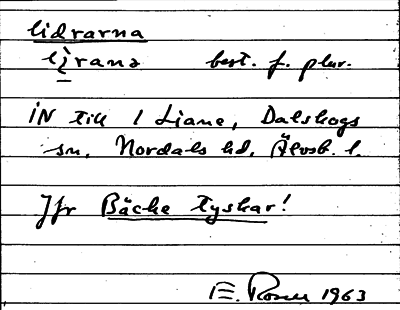 lidrarna
best. f. plur.
IN till 1 Liane, Dalskogs
sn, Nordals hd, Älvsb. l.
Jfr Bäcke tyskar!
E. Rosell 1963